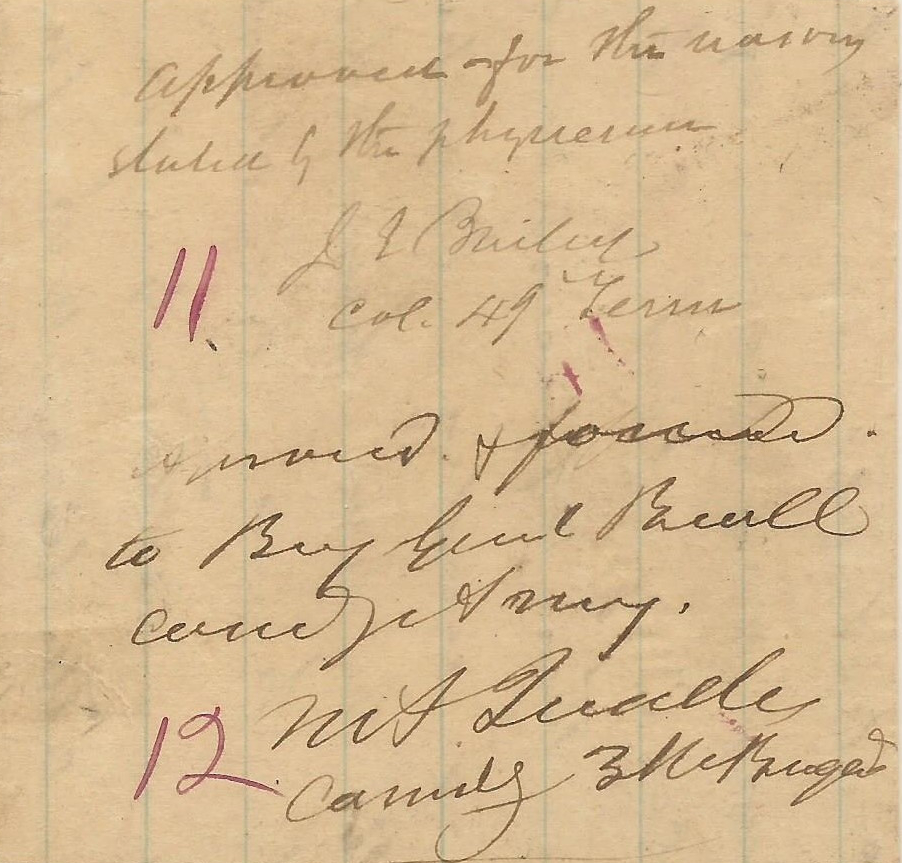 Approved for the reasons
stated by the physician
J E Bailey
11
Col. 49 Tenn
Aproved. & forward.
to Brig Genl Buell
comdg Army.
12
W A Quarles
Comdg Brigad